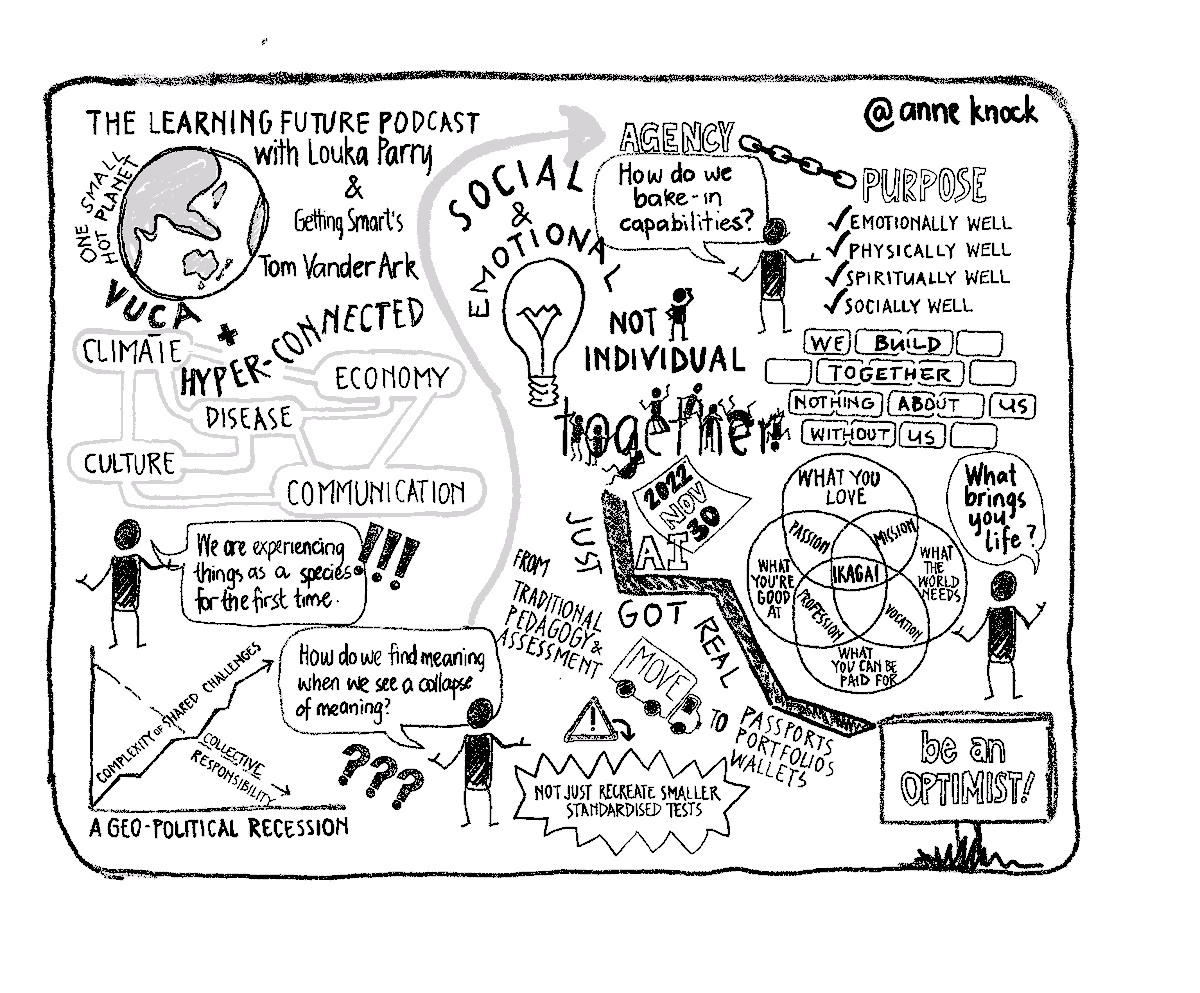 THE LEARNING FUTURE PODCAST
with Louka Parry
&
Getting Smart's
Tom Vander Ark
ONE SMALL
HOT PLANET
VUCA
+
HYPER-CONNECTED
CLIMATE
ECONOMY
DISEASE
CULTURE
COMMUNICATION
We are experiencing
things as a species
for the first time.
!!!
COMPLEXITY OF SHARED CHALLENGES
COLLECTIVE
RESPONSIBILITY
A GEO-POLITICAL RECESSION
How do we find meaning
when we see a collapse
of meaning?
???
SOCIAL
&
EMOTIONAL
AGENCY
How do we
bake-in
capabilities?
@anne knock
PURPOSE
✓EMOTIONALLY WELL
✓PHYSICALLY WELL
✓SPIRITUALLY WELL
✓SOCIALLY WELL
NOT
INDIVIDUAL
together!
WE BUILD
TOGETHER
NOTHING ABOUT US
WITHOUT US
2022
NOV
30
AI
JUST
GOT
REAL
FROM
TRADITIONAL
PEDAGOGY &
ASSESSMENT
MOVE
TO
PASSPORTS
PORTFOLIOS
WALLETS
!
NOT JUST RECREATE SMALLER
STANDARDISED TESTS
WHAT YOU
LOVE
PASSION
MISSION
WHAT
YOU'RE
GOOD
AT
IKAGAI
WHAT
THE
WORLD
NEEDS
PROFESSION
VOCATION
WHAT
YOU CAN BE
PAID FOR
What
brings
you
life?
be an
OPTIMIST!